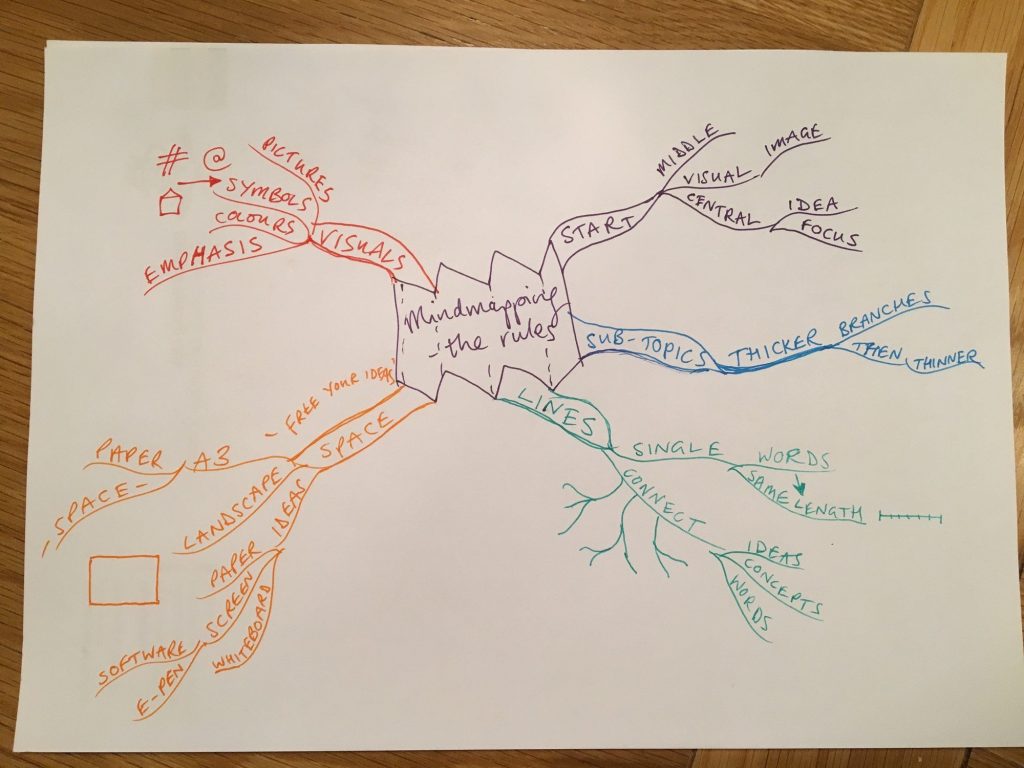 Mindmapping
- the rules
START
MIDDLE
VISUAL
IMAGE
CENTRAL
IDEA
FOCUS
SUB-TOPICS
THICKER
BRANCHES
THEN
THINNER
LINES
SINGLE
WORDS
SAME LENGTH
CONNECT
IDEAS
CONCEPTS
WORDS
SPACE
- FREE YOUR IDEAS
A3
PAPER
- SPACE -
LANDSCAPE
IDEAS
PAPER
SCREEN
SOFTWARE
E-PEN
WHITEBOARD
VISUALS
PICTURES
# @
SYMBOLS
COLOURS
EMPHASIS